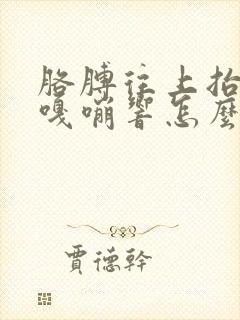 胳膊往上抬
嘎嘣響怎麼
賈德幹